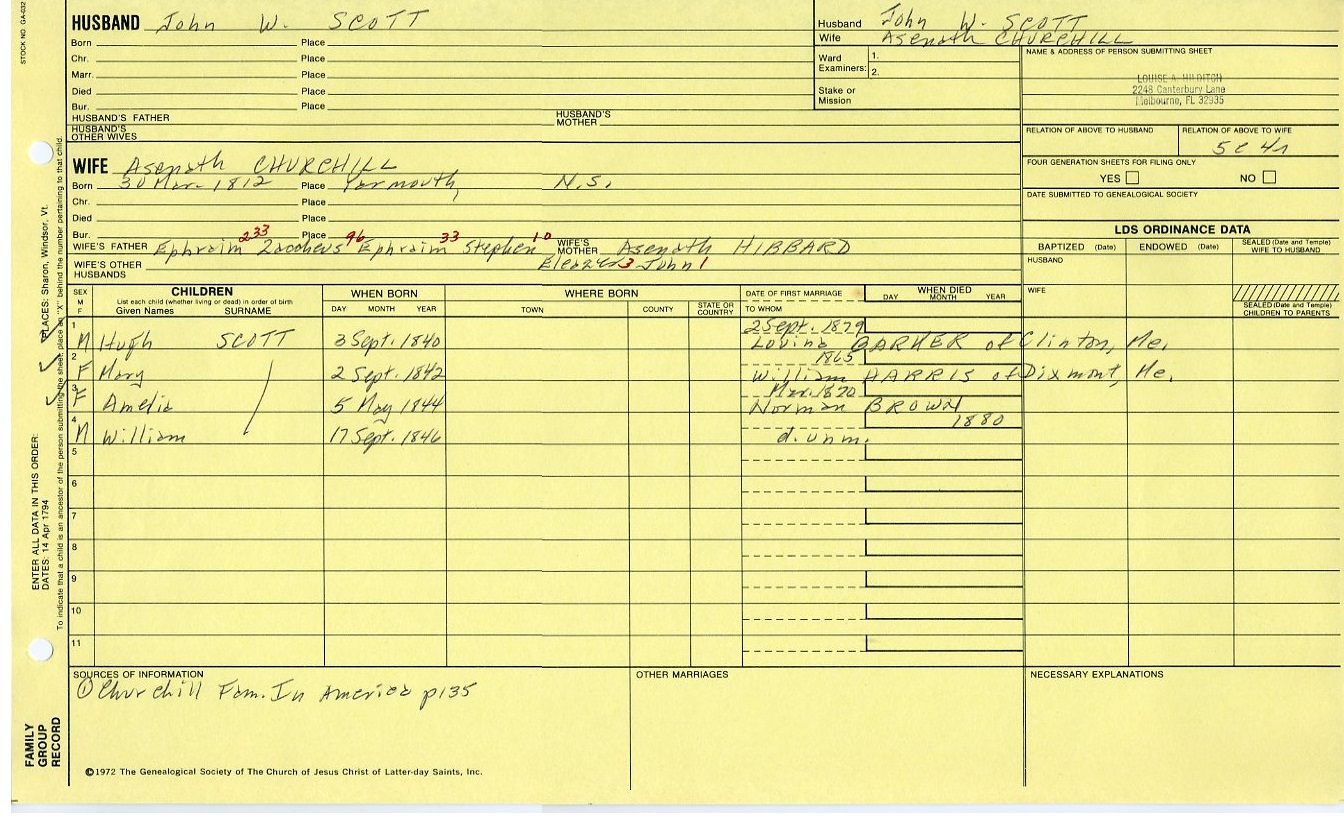 STOCK NO. GA-032
HUSBAND John W. SCOTT
Born Place
Chr. Place
Marr. Place
Died Place
Bur. Place
HUSBAND'S FATHER HUSBAND'S MOTHER
HUSBAND'S OTHER WIVES
Husband John W. SCOTT
Wife Asenath CHURCHILL
Ward Examiners: 1.
2.
Stake or Mission
NAME & ADDRESS OF PERSON SUBMITTING SHEET
LOUISE A. HILDITCH
2248 Canterbury Lane
Melbourne, FL 32935
RELATION OF ABOVE TO HUSBAND RELATION OF ABOVE TO WIFE
5c 4r
FOUR GENERATION SHEETS FOR FILING ONLY
YES NO
DATE SUBMITTED TO GENEALOGICAL SOCIETY
WIFE Asenath CHURCHILL
Born 30 Mar. 1812 Place Yarmouth, N.S.
Chr. Place
Died Place
Bur. Place
WIFE'S FATHER Ephraim 233 Zaccheus 96 Ephraim 33 Stephen 10 WIFE'S MOTHER Asenath HIBBARD
Eleazer 3 John 1
WIFE'S OTHER HUSBANDS
LDS ORDINANCE DATA
BAPTIZED (Date) ENDOWED (Date) SEALED (Date and Temple) WIFE TO HUSBAND
HUSBAND
WIFE
SEALED (Date and Temple) CHILDREN TO PARENTS
SEX M F CHILDREN WHEN BORN WHERE BORN DATE OF FIRST MARRIAGE WHEN DIED
List each child (whether living or dead) in order of birth
Given Names SURNAME DAY MONTH YEAR TOWN COUNTY STATE OR COUNTRY TO WHOM DAY MONTH YEAR
1 2 Sept. 1879
M Hugh SCOTT 3 Sept. 1840 Lovina BARKER of Clinton, Me.
2 1865
F Mary 2 Sept. 1842 William HARRIS of Dixmont, Me.
3 Mar. 1870
F Amelia 5 May 1844 Norman BROWN
4 1880
M William 17 Sept. 1846 d. unm.
5
6
7
8
9
10
11
SOURCES OF INFORMATION OTHER MARRIAGES NECESSARY EXPLANATIONS
① Churchill Fam. In America p135
©1972 The Genealogical Society of The Church of Jesus Christ of Latter-day Saints, Inc.
FAMILY GROUP RECORD
ENTER ALL DATA IN THIS ORDER:
DATES: 14 Apr 1794 PLACES: Sharon, Windsor, Vt.
To indicate that a child is an ancestor of the person submitting the sheet, place an "X" behind the number pertaining to that child.